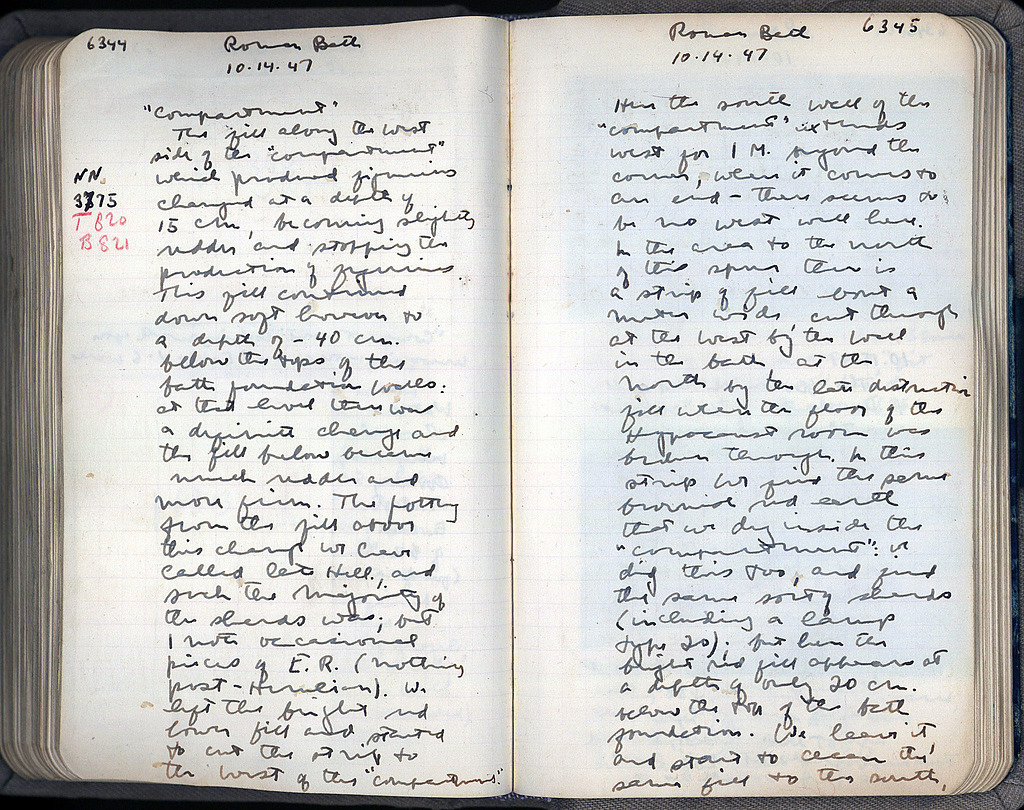 6344
Roman Bath
10.14.47
"compartment"
The fill along the west
side of the "compartment"
which produced figurines
NN
3775
T 820
B 821
changed at a depth of
15 cm, becoming slightly
redder and stopping the
production of figurines
This fill continued
down soft brown to
a depth of - 40 cm.
below the tops of the
bath foundation walls.
at that level there was
a definite change and
the fill below became
much redder and
more firm. The pottery
from the fill above
this change we have
called late Hell., and
such the majority of
the sherds was; but
I note occasional
pieces of E.R. (nothing
post-Herulian). We
left the bright red
lower fill and started
to cut the strip to
the west of the "compartment."
6345
Roman Bath
10.14.47
Here the south wall of the
"compartment" extends
west for 1 M. beyond the
corner, where it comes to
an end - there seems to
be no west wall here.
In the area to the north
of this spur there is
a strip of fill about a
meter wide cut through
at the west by the wall
in the bath, at the
north by the late destruction
fill where the floor of the
Hypocaust room was
broken through. In this
strip we find the same
brownish red earth
that we dug inside the
"compartment": we
dig this too, and find
the same sort of sherds
(including a lamp
type 20); but here the
bright red fill appears at
a depth of only 20 cm.
below the top of the bath
foundation. We leave it
and start to clean the
same fill to the south,